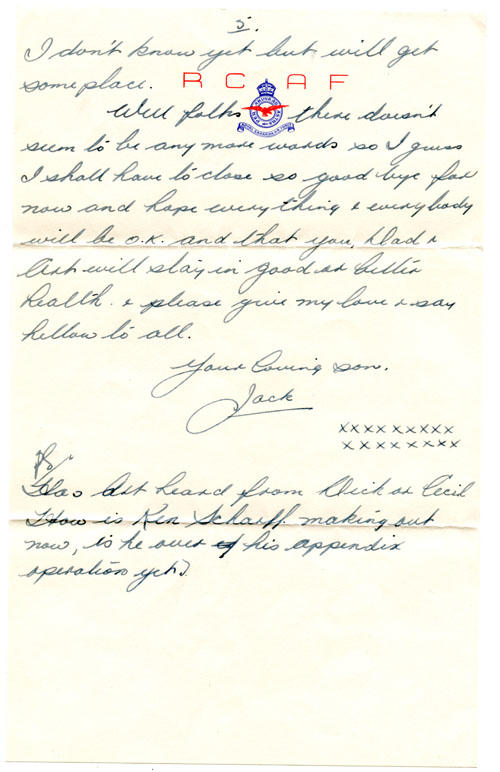 5.
I don't know yet but will get
some place.
R C A F
Well folks there doesn't
seem to be any more words so I guess
I shall have to close so good bye for
now and hope everything & everybody
will be O.K. and that you, Dad &
Art will stay in good or better
health. & please give my love & say
hellow to all.
Your loving son.
Jack
xxxxxxxxx
xxxxxxxxx
P.S.
Has Art heard from Dick or Cecil
How is Ken Scharff making out
now, is he over of his appendix
operation yet?